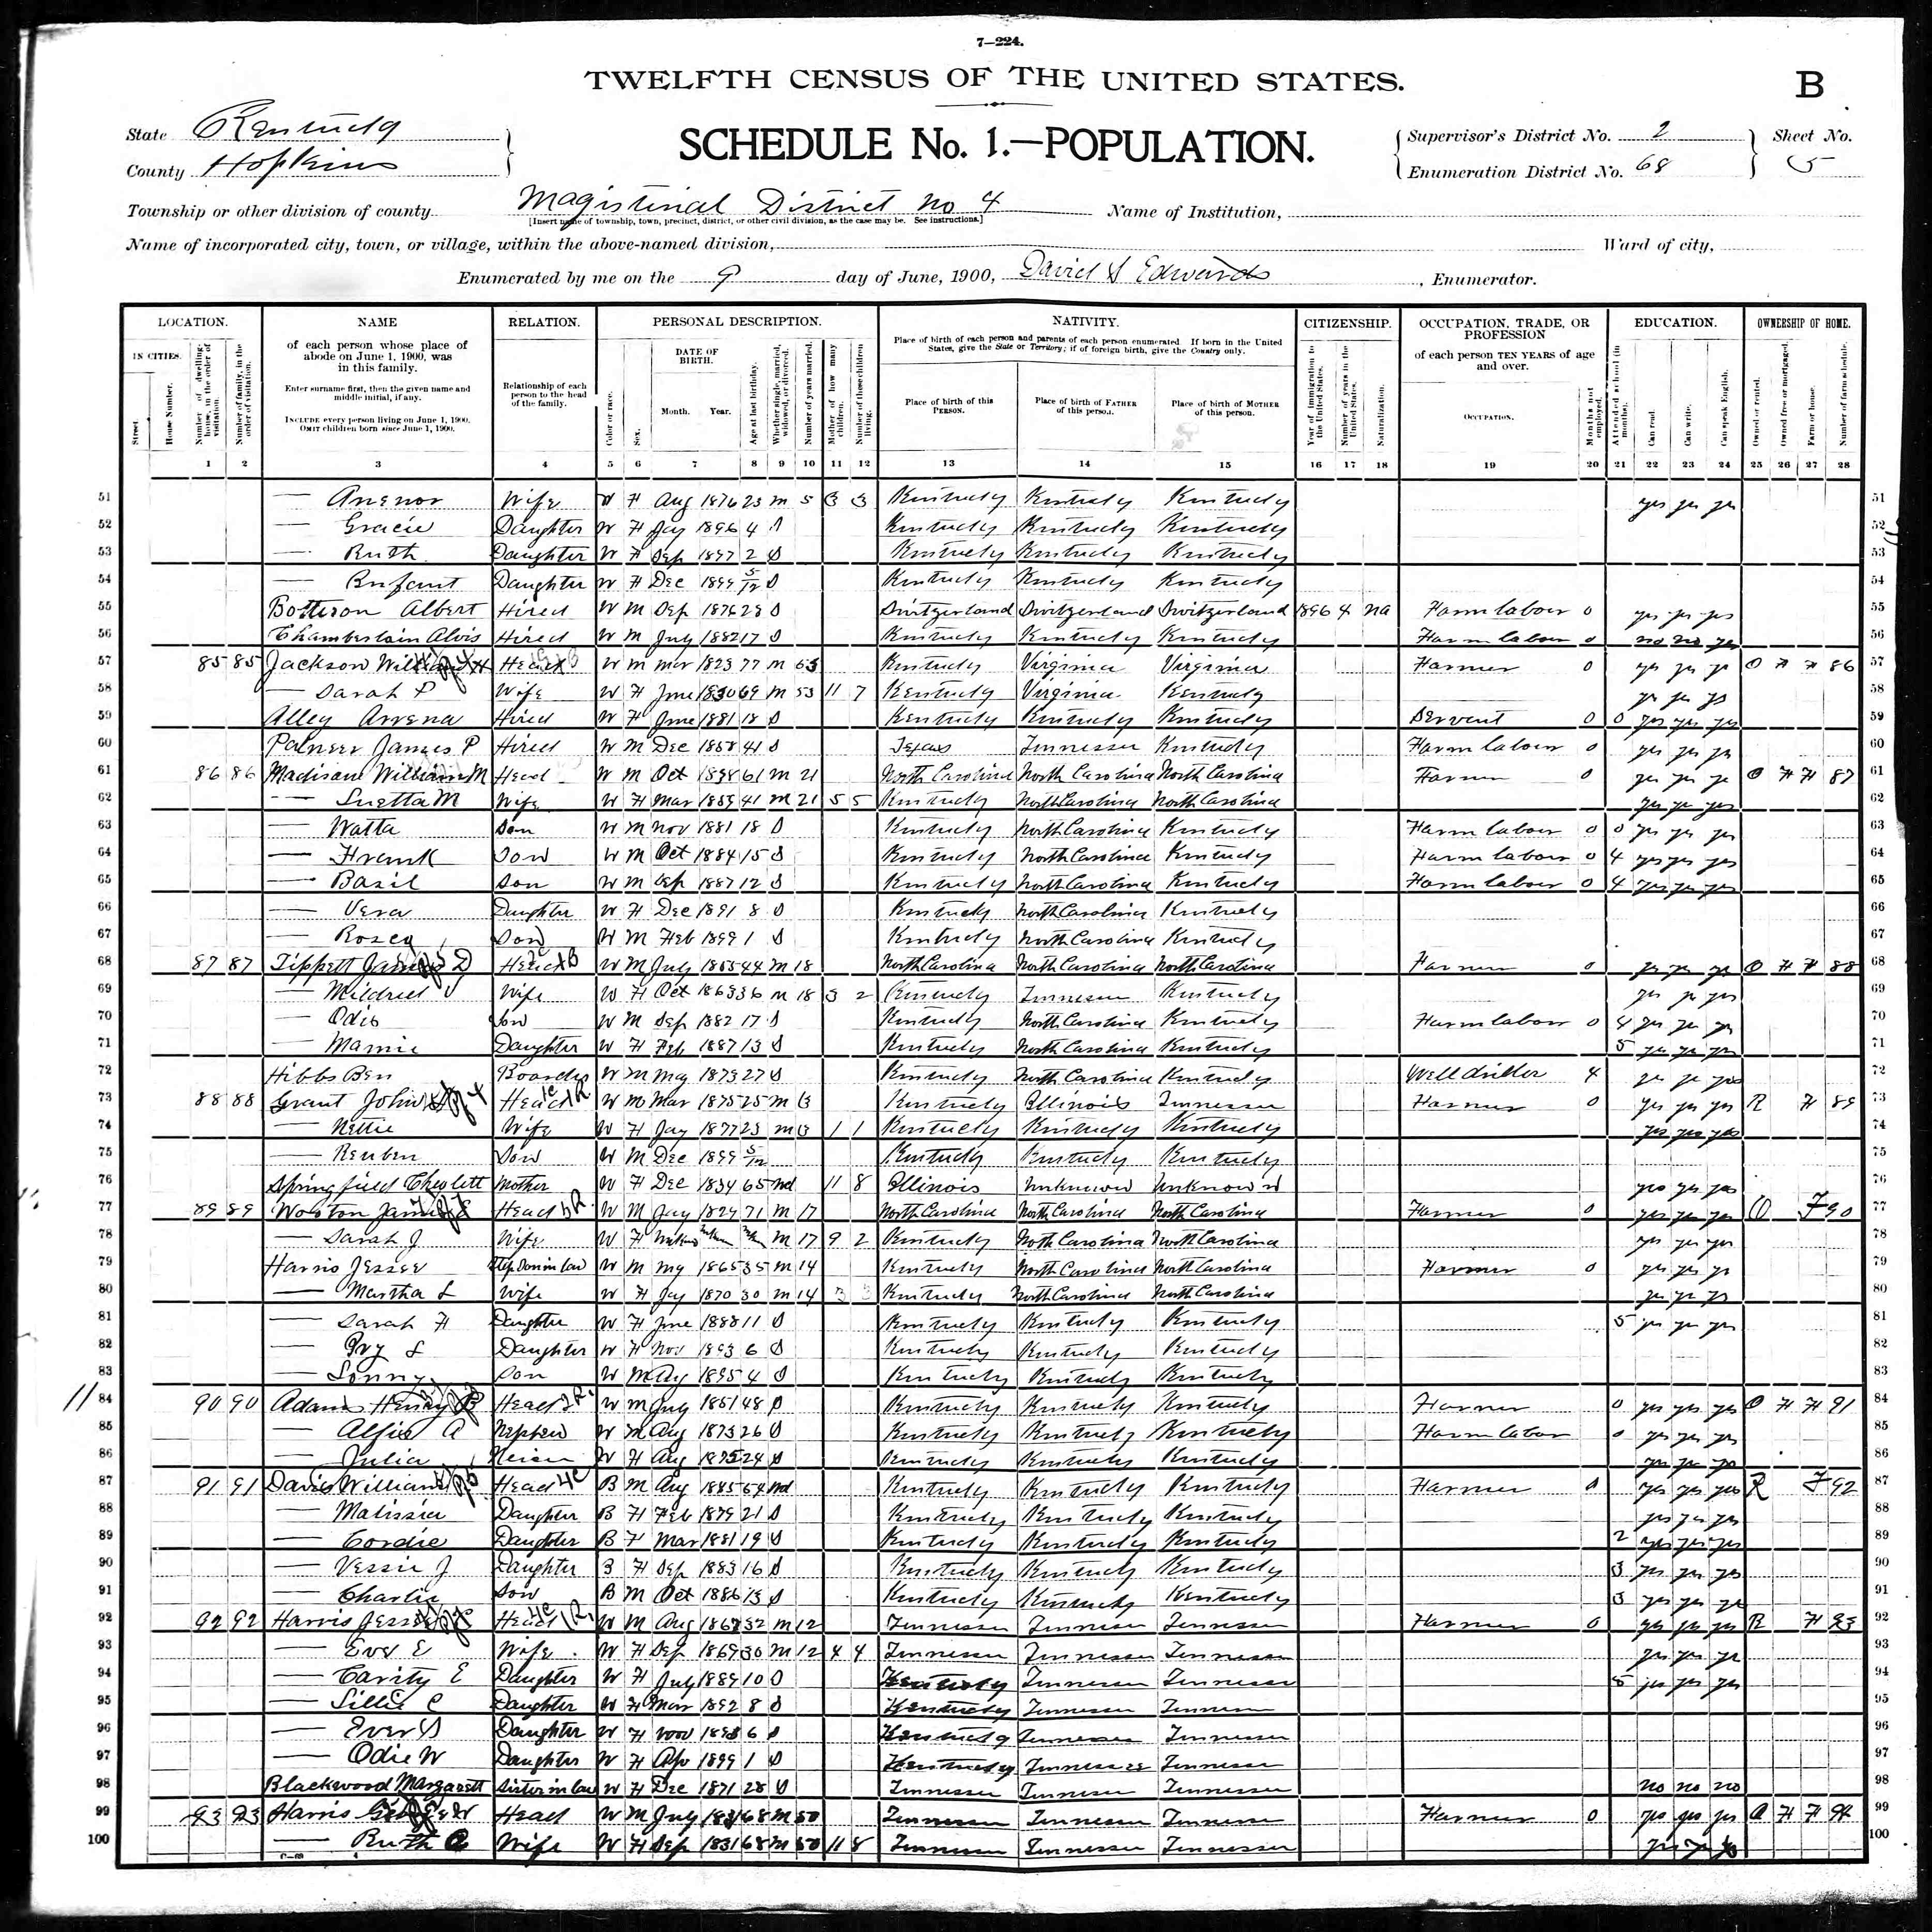 7—224.
TWELFTH CENSUS OF THE UNITED STATES.
B
State Kentucky
SCHEDULE No. 1.—POPULATION.
Supervisor's District No. 2
Sheet No.
County Hopkins
Enumeration District No. 68
5
Township or other division of county Magisterial District No 4 Name of Institution,
[Insert name of township, town, precinct, district, or other civil division, as the case may be. See instructions.]
Name of incorporated city, town, or village, within the above-named division, Ward of city,
Enumerated by me on the 9 day of June, 1900, David S Edwards, Enumerator.
LOCATION. NAME RELATION. PERSONAL DESCRIPTION. NATIVITY. CITIZENSHIP. OCCUPATION, TRADE, OR PROFESSION EDUCATION. OWNERSHIP OF HOME.
IN CITIES. Street. House Number. Number of dwelling-house, in the order of visitation. Number of family, in the order of visitation.
of each person whose place of abode on June 1, 1900, was in this family.
Enter surname first, then the given name and middle initial, if any.
INCLUDE every person living on June 1, 1900. OMIT children born since June 1, 1900.
Relationship of each person to the head of the family.
Color or race. Sex. DATE OF BIRTH. Month. Year. Age at last birthday. Whether single, married, widowed, or divorced. Number of years married. Mother of how many children. Number of these children living.
Place of birth of each person and parents of each person enumerated. If born in the United States, give the State or Territory; if of foreign birth, give the Country only.
Place of birth of this PERSON. Place of birth of FATHER of this person. Place of birth of MOTHER of this person.
Year of immigration to the United States. Number of years in the United States. Naturalization.
of each person TEN YEARS of age and over.
OCCUPATION. Months not employed.
Attended school (in months). Can read. Can write. Can speak English.
Owned or rented. Owned free or mortgaged. Farm or house. Number of farm schedule.
1 2 3 4 5 6 7 8 9 10 11 12 13 14 15 16 17 18 19 20 21 22 23 24 25 26 27 28
51 — Wife W F Aug 1876 23 M 5 3 3 Kentucky Kentucky Kentucky yes yes yes 51
52 — Gracie Daughter W F Jay 1896 4 S Kentucky Kentucky Kentucky 52
53 — Ruth Daughter W F Sep 1897 2 S Kentucky Kentucky Kentucky 53
54 — Infant Daughter W F Dec 1899 5/12 S Kentucky Kentucky Kentucky 54
55 Botteron Albert Hired W M Sep 1876 23 S Switzerland Switzerland Switzerland 1896 4 na Farm labour 0 yes yes yes 55
56 Chamberlain Alvis Hired W M July 1882 17 S Kentucky Kentucky Kentucky Farm labour 0 no no yes 56
57 85 85 Jackson William H Head W M Mar 1823 77 M 53 Kentucky Virginia Virginia Farmer 0 yes yes ye O F F 86 57
58 — Sarah P Wife W F June 1830 69 M 53 11 7 Kentucky Virginia Kentucky yes yes yes 58
59 Alley Arrena Hired W F June 1881 18 S Kentucky Kentucky Kentucky Servent 0 0 yes yes yes 59
60 James P Hired W M Dec 1858 41 S Texas Tennessee Kentucky Farm labour 0 yes yes yes 60
61 86 86 Madison William M Head W M Oct 1838 61 M 21 North Carolina North Carolina North Carolina Farmer 0 yes yes ye O F F 87 61
62 — Luetta M Wife W F Mar 1859 41 M 21 5 5 Kentucky North Carolina North Carolina yes ye yes 62
63 — Watta Son W M Nov 1881 18 S Kentucky North Carolina Kentucky Farm labour 0 0 yes yes yes 63
64 — Frank Son W M Oct 1884 15 S Kentucky North Carolina Kentucky Farm labour 0 4 yes yes yes 64
65 — Basil Son W M Sep 1887 12 S Kentucky North Carolina Kentucky Farm labour 0 4 yes yes yes 65
66 — Vera Daughter W F Dec 1891 8 S Kentucky North Carolina Kentucky 66
67 — Roscy Son W M Feb 1899 1 S Kentucky North Carolina Kentucky 67
68 87 87 Tippett James D Head W M July 1855 44 M 18 North Carolina North Carolina North Carolina Farmer 0 yes yes yes O F F 88 68
69 — Mildred Wife W F Oct 1863 36 M 18 3 2 Kentucky Tennessee Kentucky yes ye yes 69
70 — Odis Son W M Sep 1882 17 S Kentucky North Carolina Kentucky Farm labour 0 4 yes yes yes 70
71 — Mamie Daughter W F Feb 1887 13 S Kentucky North Carolina Kentucky 5 yes yes yes 71
72 Hibbs Ben Boarder W M May 1873 27 S Kentucky North Carolina Kentucky Well driller 4 ye ye yes 72
73 88 88 Grant John Head W M Mar 1875 25 M 3 Kentucky Illinois Tennessee Farmer 0 yes yes yes R F 89 73
74 — Nettie Wife W F Jay 1877 23 M 3 1 1 Kentucky Kentucky Kentucky yes yes yes 74
75 — Reuben Son W M Dec 1899 5/12 Kentucky Kentucky Kentucky 75
76 Springfield Mother W F Dec 1834 65 wd 11 8 Illinois Unknown Unknown yes yes yes 76
77 89 89 Wooton James Head W M Jay 1829 71 M 17 North Carolina North Carolina North Carolina Farmer 0 yes yes yes O F 90 77
78 — Sarah J Wife W F M 17 9 2 Kentucky North Carolina North Carolina yes yes yes 78
79 Harris Jesse Step Son in law W M My 1865 35 M 14 Kentucky North Carolina North Carolina Farmer 0 yes yes ye 79
80 — Martha L Wife W F Jay 1870 30 M 14 3 3 Kentucky North Carolina North Carolina yes yes ye 80
81 — Sarah F Daughter W F June 1888 11 S Kentucky Kentucky Kentucky 5 yes yes yes 81
82 — Daughter W F Nov 1893 6 S Kentucky Kentucky Kentucky 82
83 — Lonny Son W M Aug 1895 4 S Kentucky Kentucky Kentucky 83
11 84 90 90 Adams Henry B Head W M July 1851 48 S Kentucky Kentucky Kentucky Farmer 0 yes yes yes O F F 91 84
85 — A Nephew W M Aug 1873 26 S Kentucky Kentucky Kentucky Farm labor 0 yes yes yes 85
86 — Julia Neice W F Aug 1875 24 S Kentucky Kentucky Kentucky yes yes yes 86
87 91 91 Davis William Head B M Aug 1845 54 wd Kentucky Kentucky Kentucky Farmer 0 yes yes yes R F 92 87
88 — Malissia Daughter B F Feb 1879 21 S Kentucky Kentucky Kentucky yes yes yes 88
89 — Cordie Daughter B F Mar 1881 19 S Kentucky Kentucky Kentucky 2 yes yes yes 89
90 — Vessie J Daughter B F Sep 1883 16 S Kentucky Kentucky Kentucky 3 yes yes yes 90
91 — Charlie Son B M Oct 1886 13 S Kentucky Kentucky Kentucky 3 yes yes ye 91
92 92 92 Harris Jesse Head W M Aug 1867 32 M 12 Tennessee Tennessee Tennessee Farmer 0 yes yes yes R F 93 92
93 — Ever E Wife W F Sep 1869 30 M 12 4 4 Tennessee Tennessee Tennessee yes yes ye 93
94 — Carity E Daughter W F July 1889 10 S Kentucky Tennessee Tennessee 5 yes yes yes 94
95 — Lillie C Daughter W F Mar 1892 8 S Kentucky Tennessee Tennessee 95
96 — Ever D Daughter W F Nov 1893 6 S Kentucky Tennessee Tennessee 96
97 — Odie W Daughter W F Apr 1899 1 S Kentucky Tennessee Tennessee 97
98 Blackwood Margarett Sister in law W F Dec 1871 28 S Tennessee Tennessee Tennessee no no no 98
99 93 93 Harris George W Head W M July 1831 68 M 50 Tennessee Tennessee Tennessee Farmer 0 yes yes yes O F F 94 99
100 — Ruth C Wife W F Sep 1831 68 M 50 11 8 Tennessee Tennessee Tennessee yes ye 100